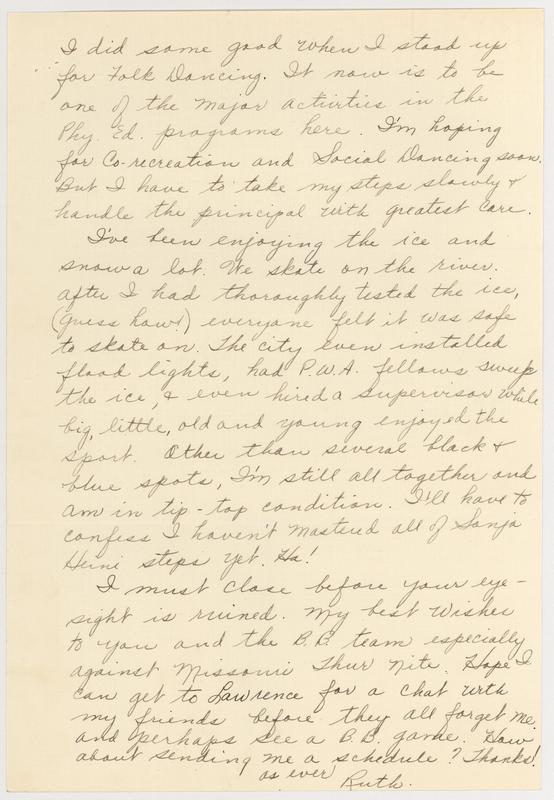 I did some good when I stood up
for Folk Dancing. It now is to be
one of the major activities in the
Phy. Ed. programs here. I'm hoping
for Co-recreation and Social Dancing soon.
But I have to take my steps slowly &
handle the principal with greatest care.
I've been enjoying the ice and
snow a lot. We skate on the river.
After I had thoroughly tested the ice,
(guess how!) everyone felt it was safe
to skate on. The city even installed
flood lights, had P.W.A. fellows sweep
the ice, & even hired a supervisor while
big, little, old and young enjoyed the
sport. Other than several black &
blue spots, I'm still all together and
am in tip-top condition. I'll have to
confess I haven't mastered all of Sonja
Heini steps yet. Ha!
I must close before your eye-
sight is ruined. My best wishes
to you and the B.B. team especially
against Missouri Thur nite. Hope I
can get to Lawrence for a chat with
my friends before they all forget me
and perhaps see a B.B. game. How
about sending me a schedule? Thanks!
as ever
Ruth.